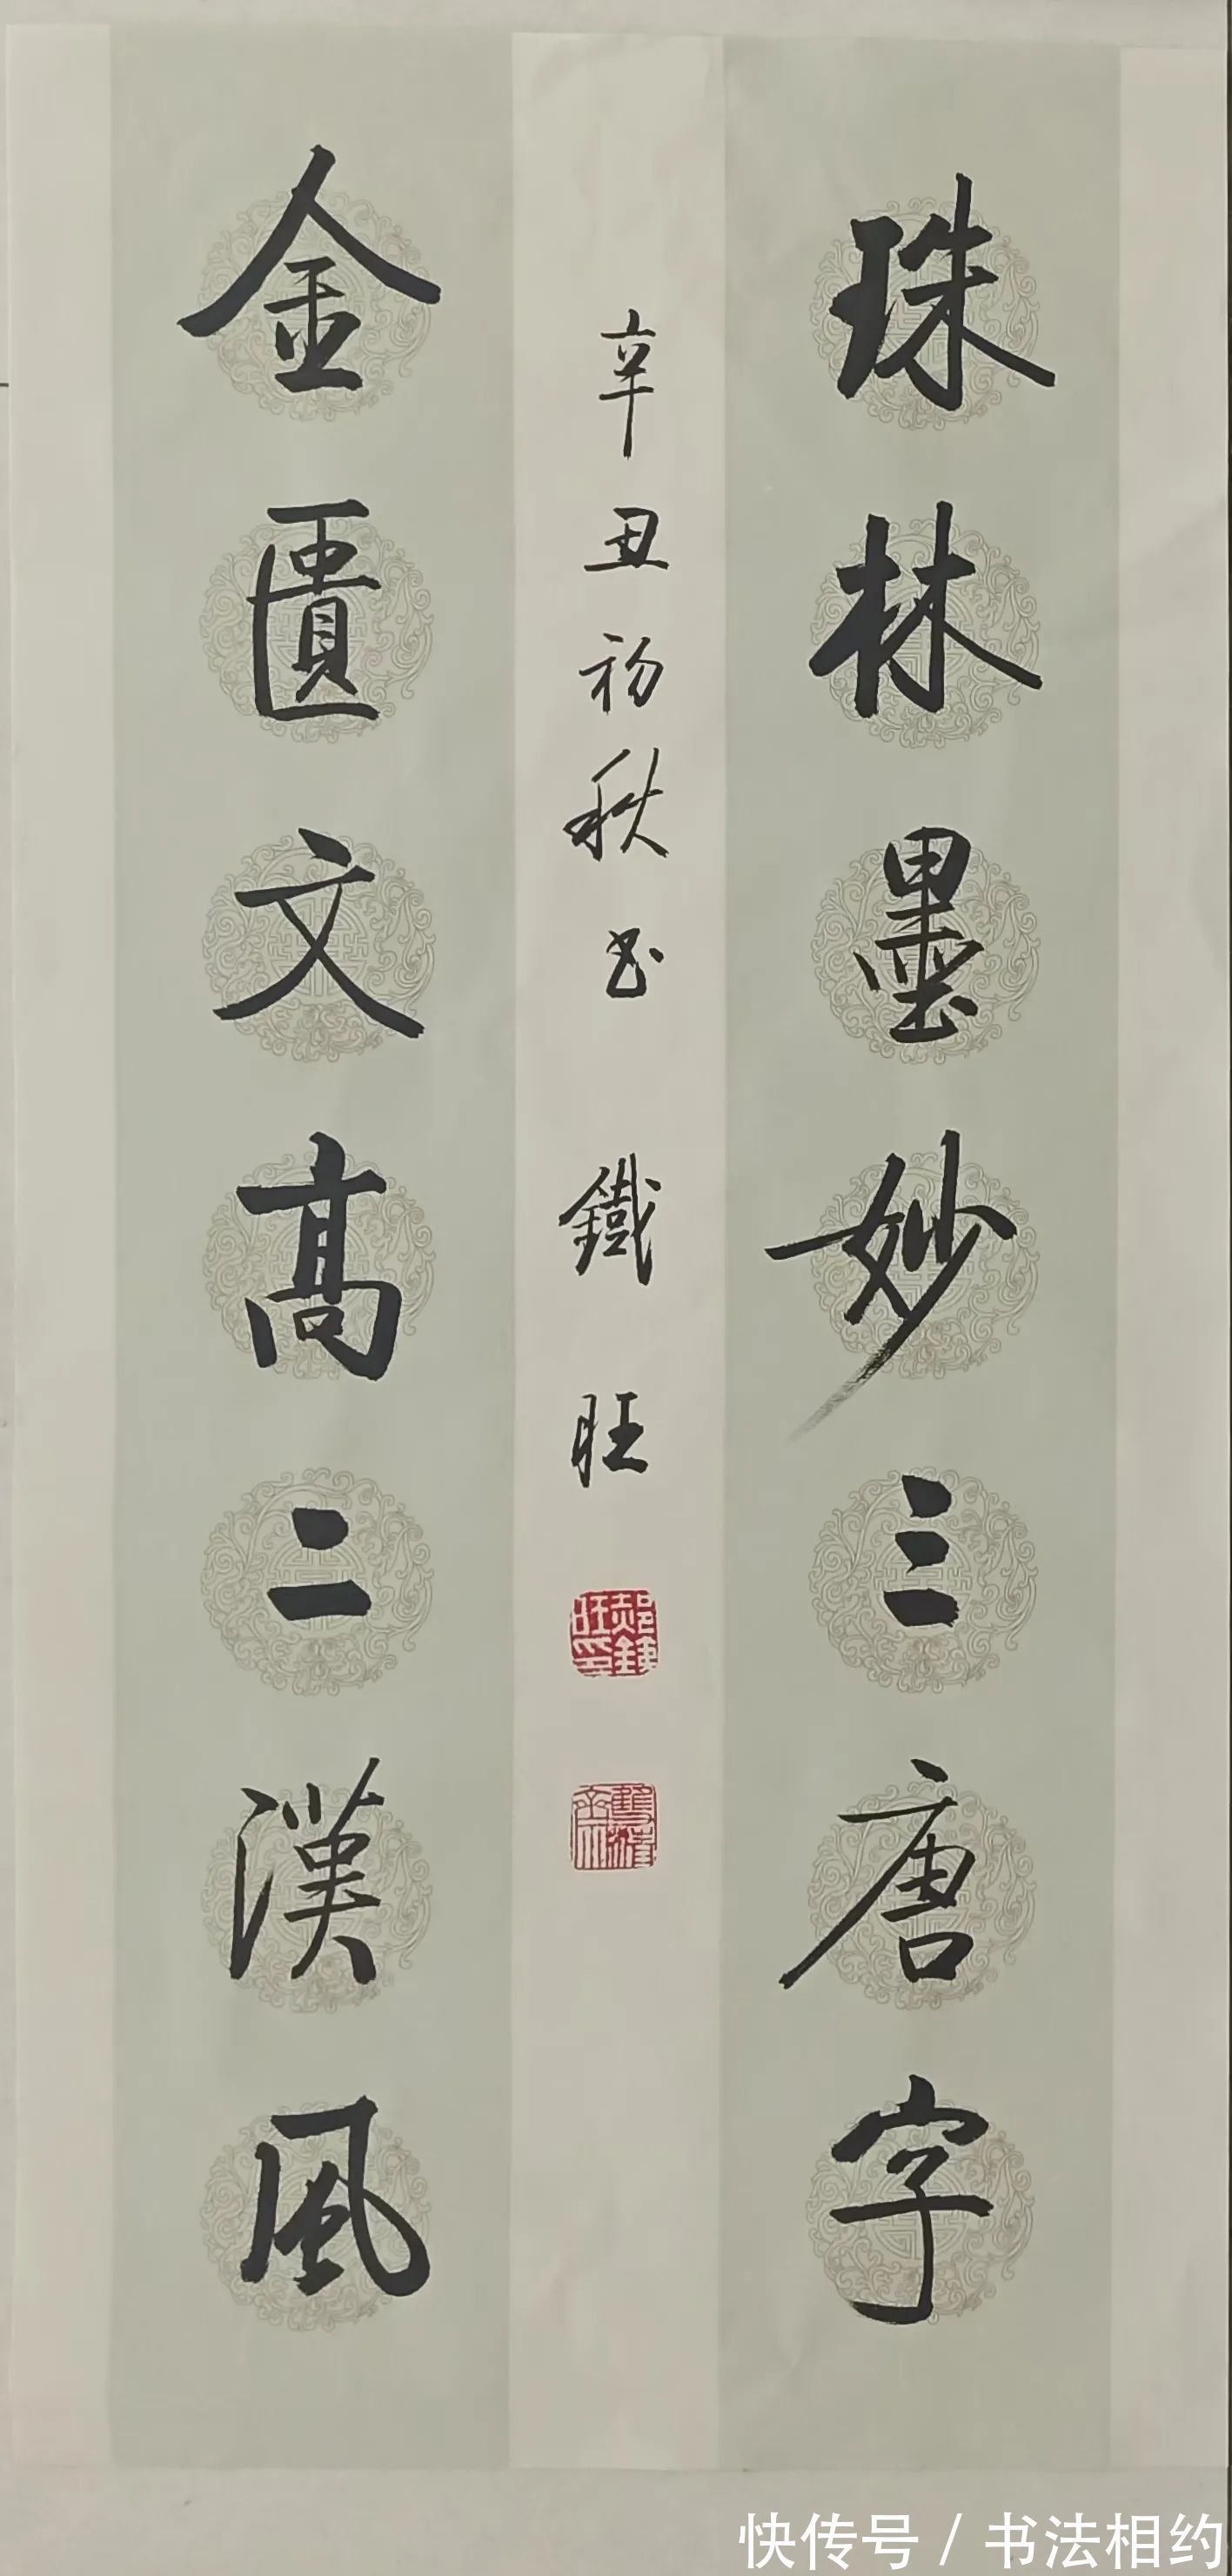 珠林墨妙三唐字
辛丑初秋书 鐵旺
金匱文高二漢風
郝鐵旺印
快传号 / 书法相约